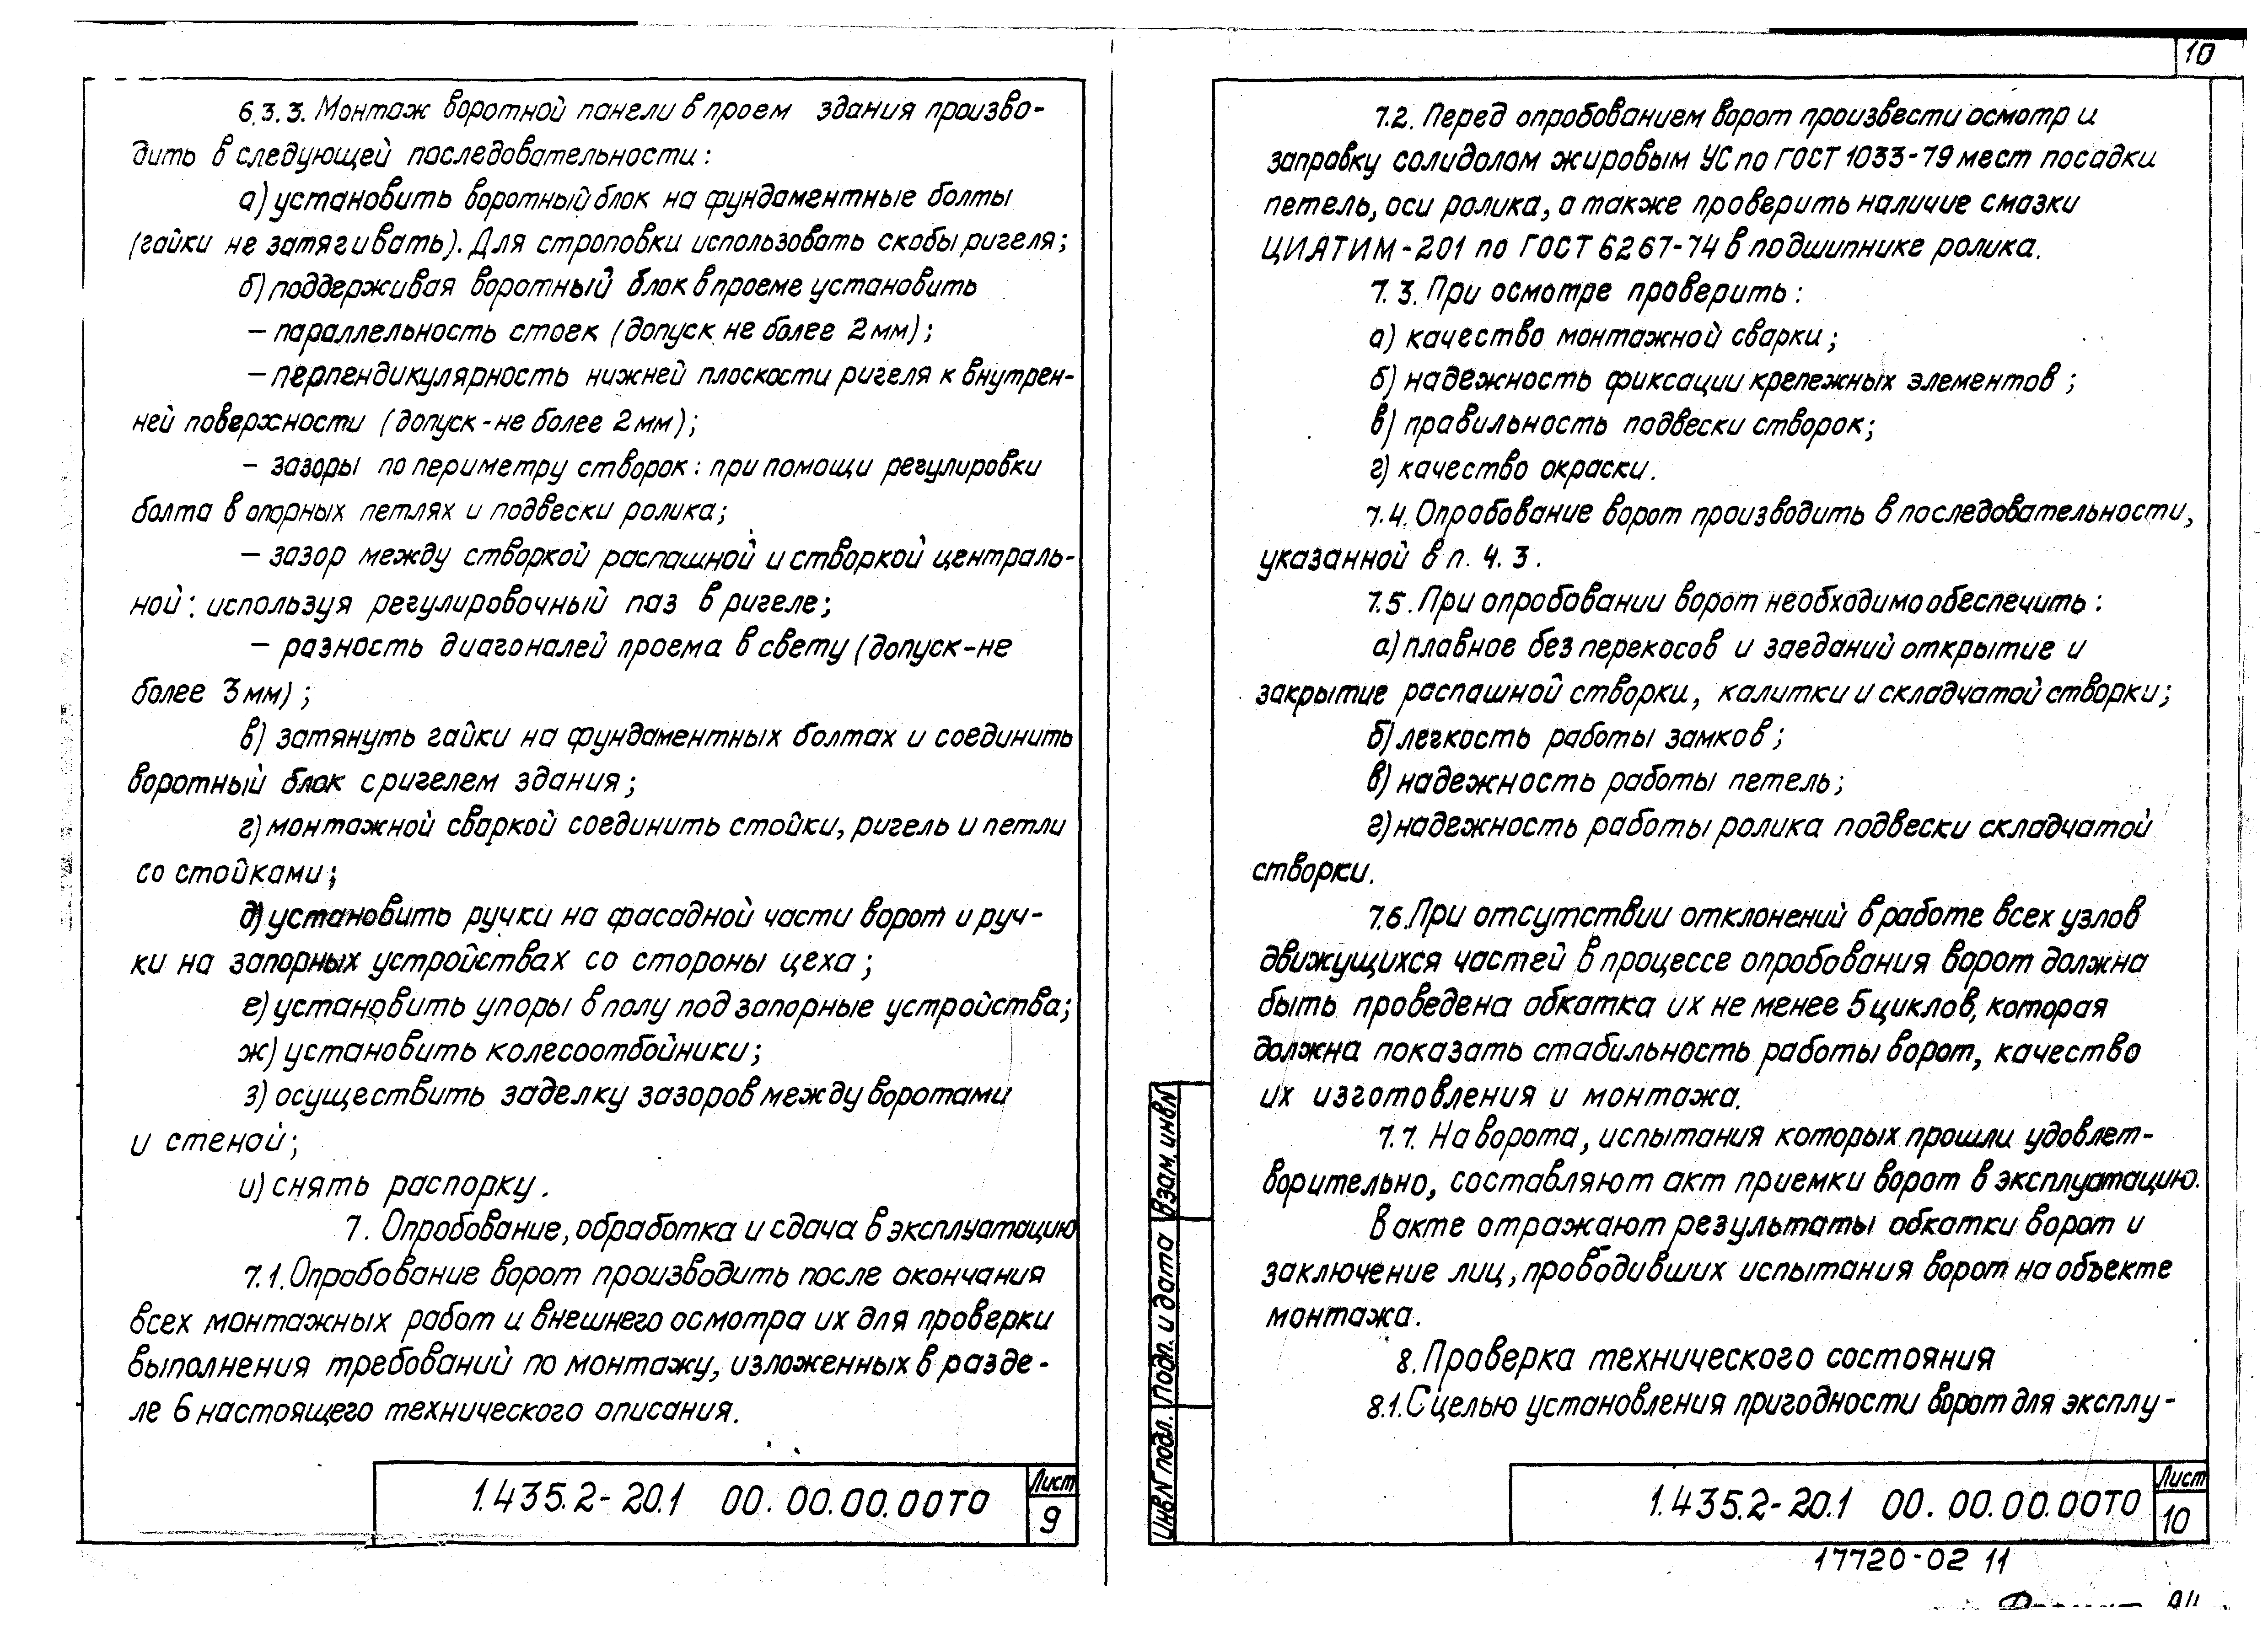 6.3.3. Монтаж воротной панели в проем здания произво-
дить в следующей последовательности:
а) установить воротный блок на фундаментные болты
(гайки не затягивать). Для строповки использовать скобы ригеля;
б) поддерживая воротный блок в проеме установить
– параллельность стоек (допуск не более 2 мм);
– перпендикулярность нижней плоскости ригеля к внутрен-
ней поверхности (допуск - не более 2 мм);
– зазоры по периметру створок: при помощи регулировки
болта в опорных петлях и подвески ролика;
– зазор между створкой распашной и створкой централь-
ной: используя регулировочный паз в ригеле;
– разность диагоналей проема в свету (допуск - не
более 3 мм);
в) затянуть гайки на фундаментных болтах и соединить
воротный блок с ригелем здания;
г) монтажной сваркой соединить стойки, ригель и петли
со стойками;
д) установить ручки на фасадной части ворот и руч-
ки на запорных устройствах со стороны цеха;
е) установить упоры в полу под запорные устройства;
ж) установить колесоотбойники;
з) осуществить заделку зазоров между воротами
и стеной;
и) снять распорку.
7. Опробование, обработка и сдача в эксплуатацию
7.1. Опробование ворот производить после окончания
всех монтажных работ и внешнего осмотра их для проверки
выполнения требований по монтажу, изложенных в разде-
ле 6 настоящего технического описания.
1.435.2-20.1 00.00.00.00ТО
Лист
9
10
7.2. Перед опробованием ворот произвести осмотр и
заправку солидолом жировым УС по ГОСТ 1033-79 мест посадки
петель, оси ролика, а также проверить наличие смазки
ЦИАТИМ-201 по ГОСТ 6267-74 в подшипнике ролика.
7.3. При осмотре проверить:
а) качество монтажной сварки;
б) надежность фиксации крепежных элементов;
в) правильность подвески створок;
г) качество окраски.
7.4. Опробование ворот производить в последовательности,
указанной в п. 4.3.
7.5. При опробовании ворот необходимо обеспечить:
а) плавное без перекосов и заеданий открытие и
закрытие распашной створки, калитки и складчатой створки;
б) легкость работы замков;
в) надежность работы петель;
г) надежность работы ролика подвески складчатой
створки.
7.6. При отсутствии отклонений в работе всех узлов
движущихся частей в процессе опробования ворот должна
быть проведена обкатка их не менее 5 циклов, которая
должна показать стабильность работы ворот, качество
их изготовления и монтажа.
7.7. На ворота, испытания которых прошли удовлет-
ворительно, составляют акт приемки ворот в эксплуатацию.
В акте отражают результаты обкатки ворот и
заключение лиц, проводивших испытания ворот на объекте
монтажа.
8. Проверка технического состояния
8.1. С целью установления пригодности ворот для эксплу-
Взам. инв N
Подп. и дата
Инв N подл.
1.435.2-20.1 00.00.00.00ТО
Лист
10
17720-02 11